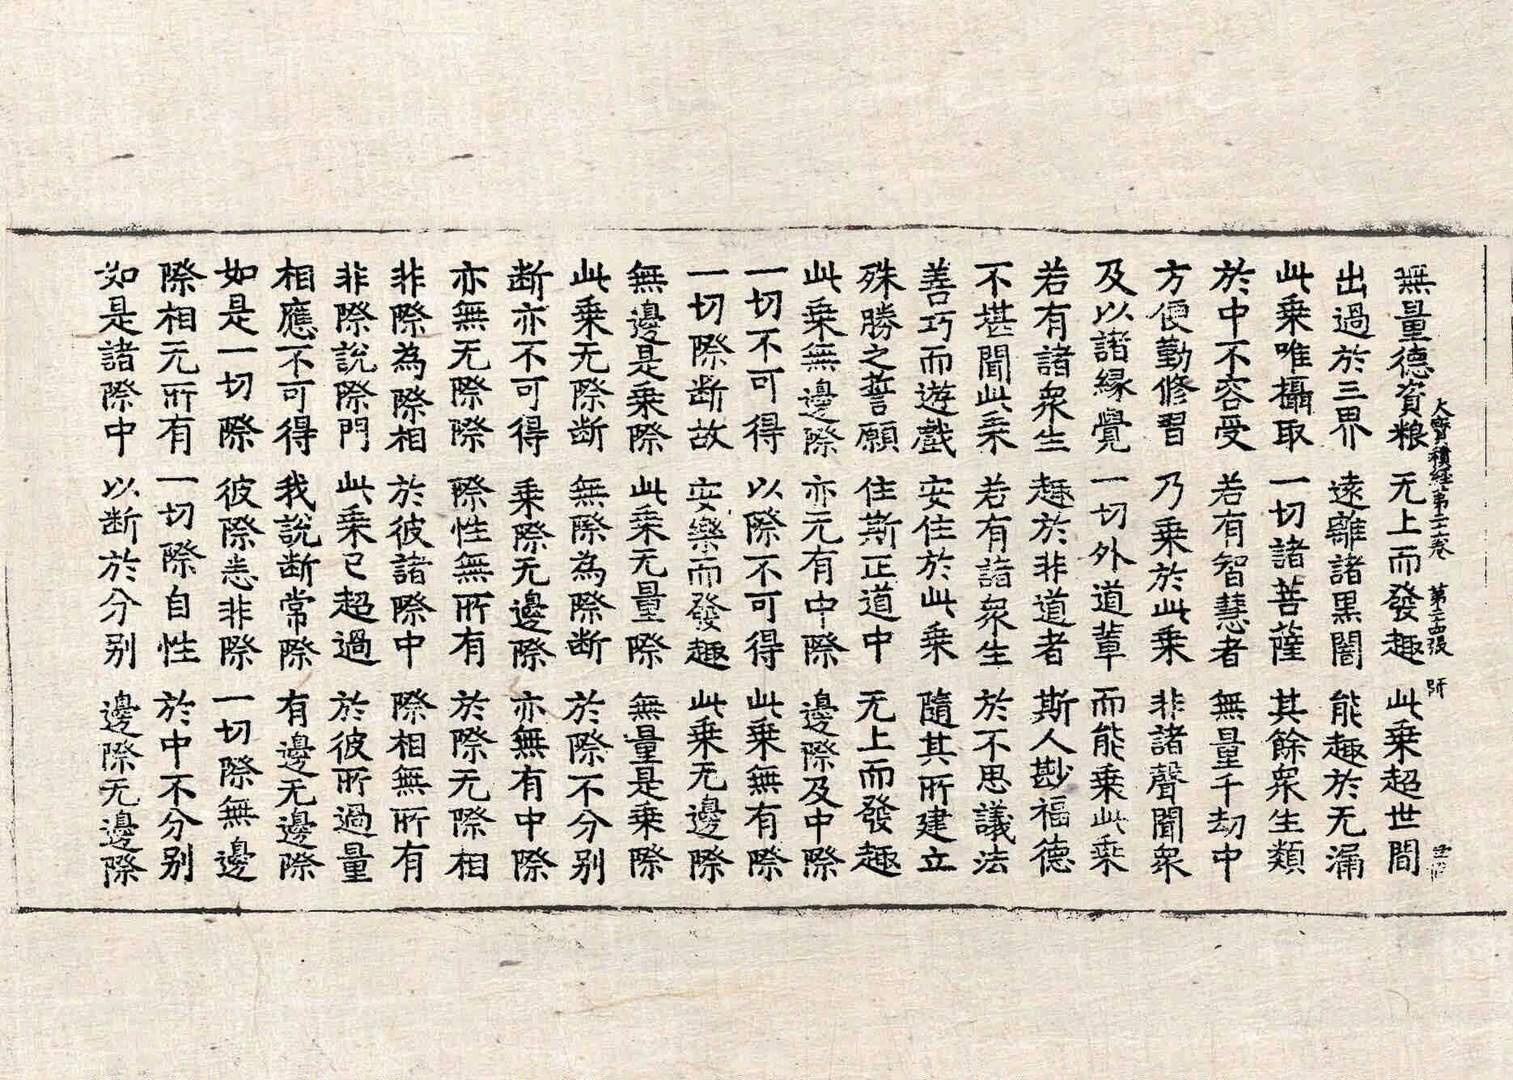 無量德資粮 无上而發趣 此乗超世間
大寳積経苐卷 苐張 師
出過於三界 遠離諸黒闇 能趣於无漏
此乗唯攝取 一切諸菩薩 其餘衆生類
於中不容受 若有智慧者 無量千劫中
方便勤修習 乃乗於此乗 非諸聲聞衆
及以諸縁覺 一切外道輩 而能乗此乗
若有諸衆生 趣於非道者 斯人尠福德
不堪聞此乗 若有諸衆生 於不思議法
善巧而遊戲 安住於此乗 隨其所建立
殊勝之誓願 住斯正道中 无上而發趣
此乗無邊際 亦无有中際 邊際及中際
一切不可得 以際不可得 此乗無有際
一切際断故 安樂而發趣 此乗无邊際
無邊是乗際 此乗无量際 無量是乗際
此乗无際断 無際為際断 於際不分别
断亦不可得 乗際无邊際 亦無有中際
亦無无際際 際性無所有 於際无際相
非際為際相 於彼諸際中 際相無所有
非際說際門 此乗已超過 於彼所過量
相應不可得 我說断常際 有邊无邊際
如是一切際 彼際悉非際 一切際無邊
際相无所有 一切際自性 於中不分别
如是諸際中 以断於分别 邊際无邊際